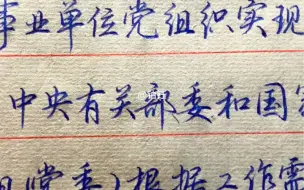 事业单位党组织实现
中央有关部委和国家
组(党委)根据工作需